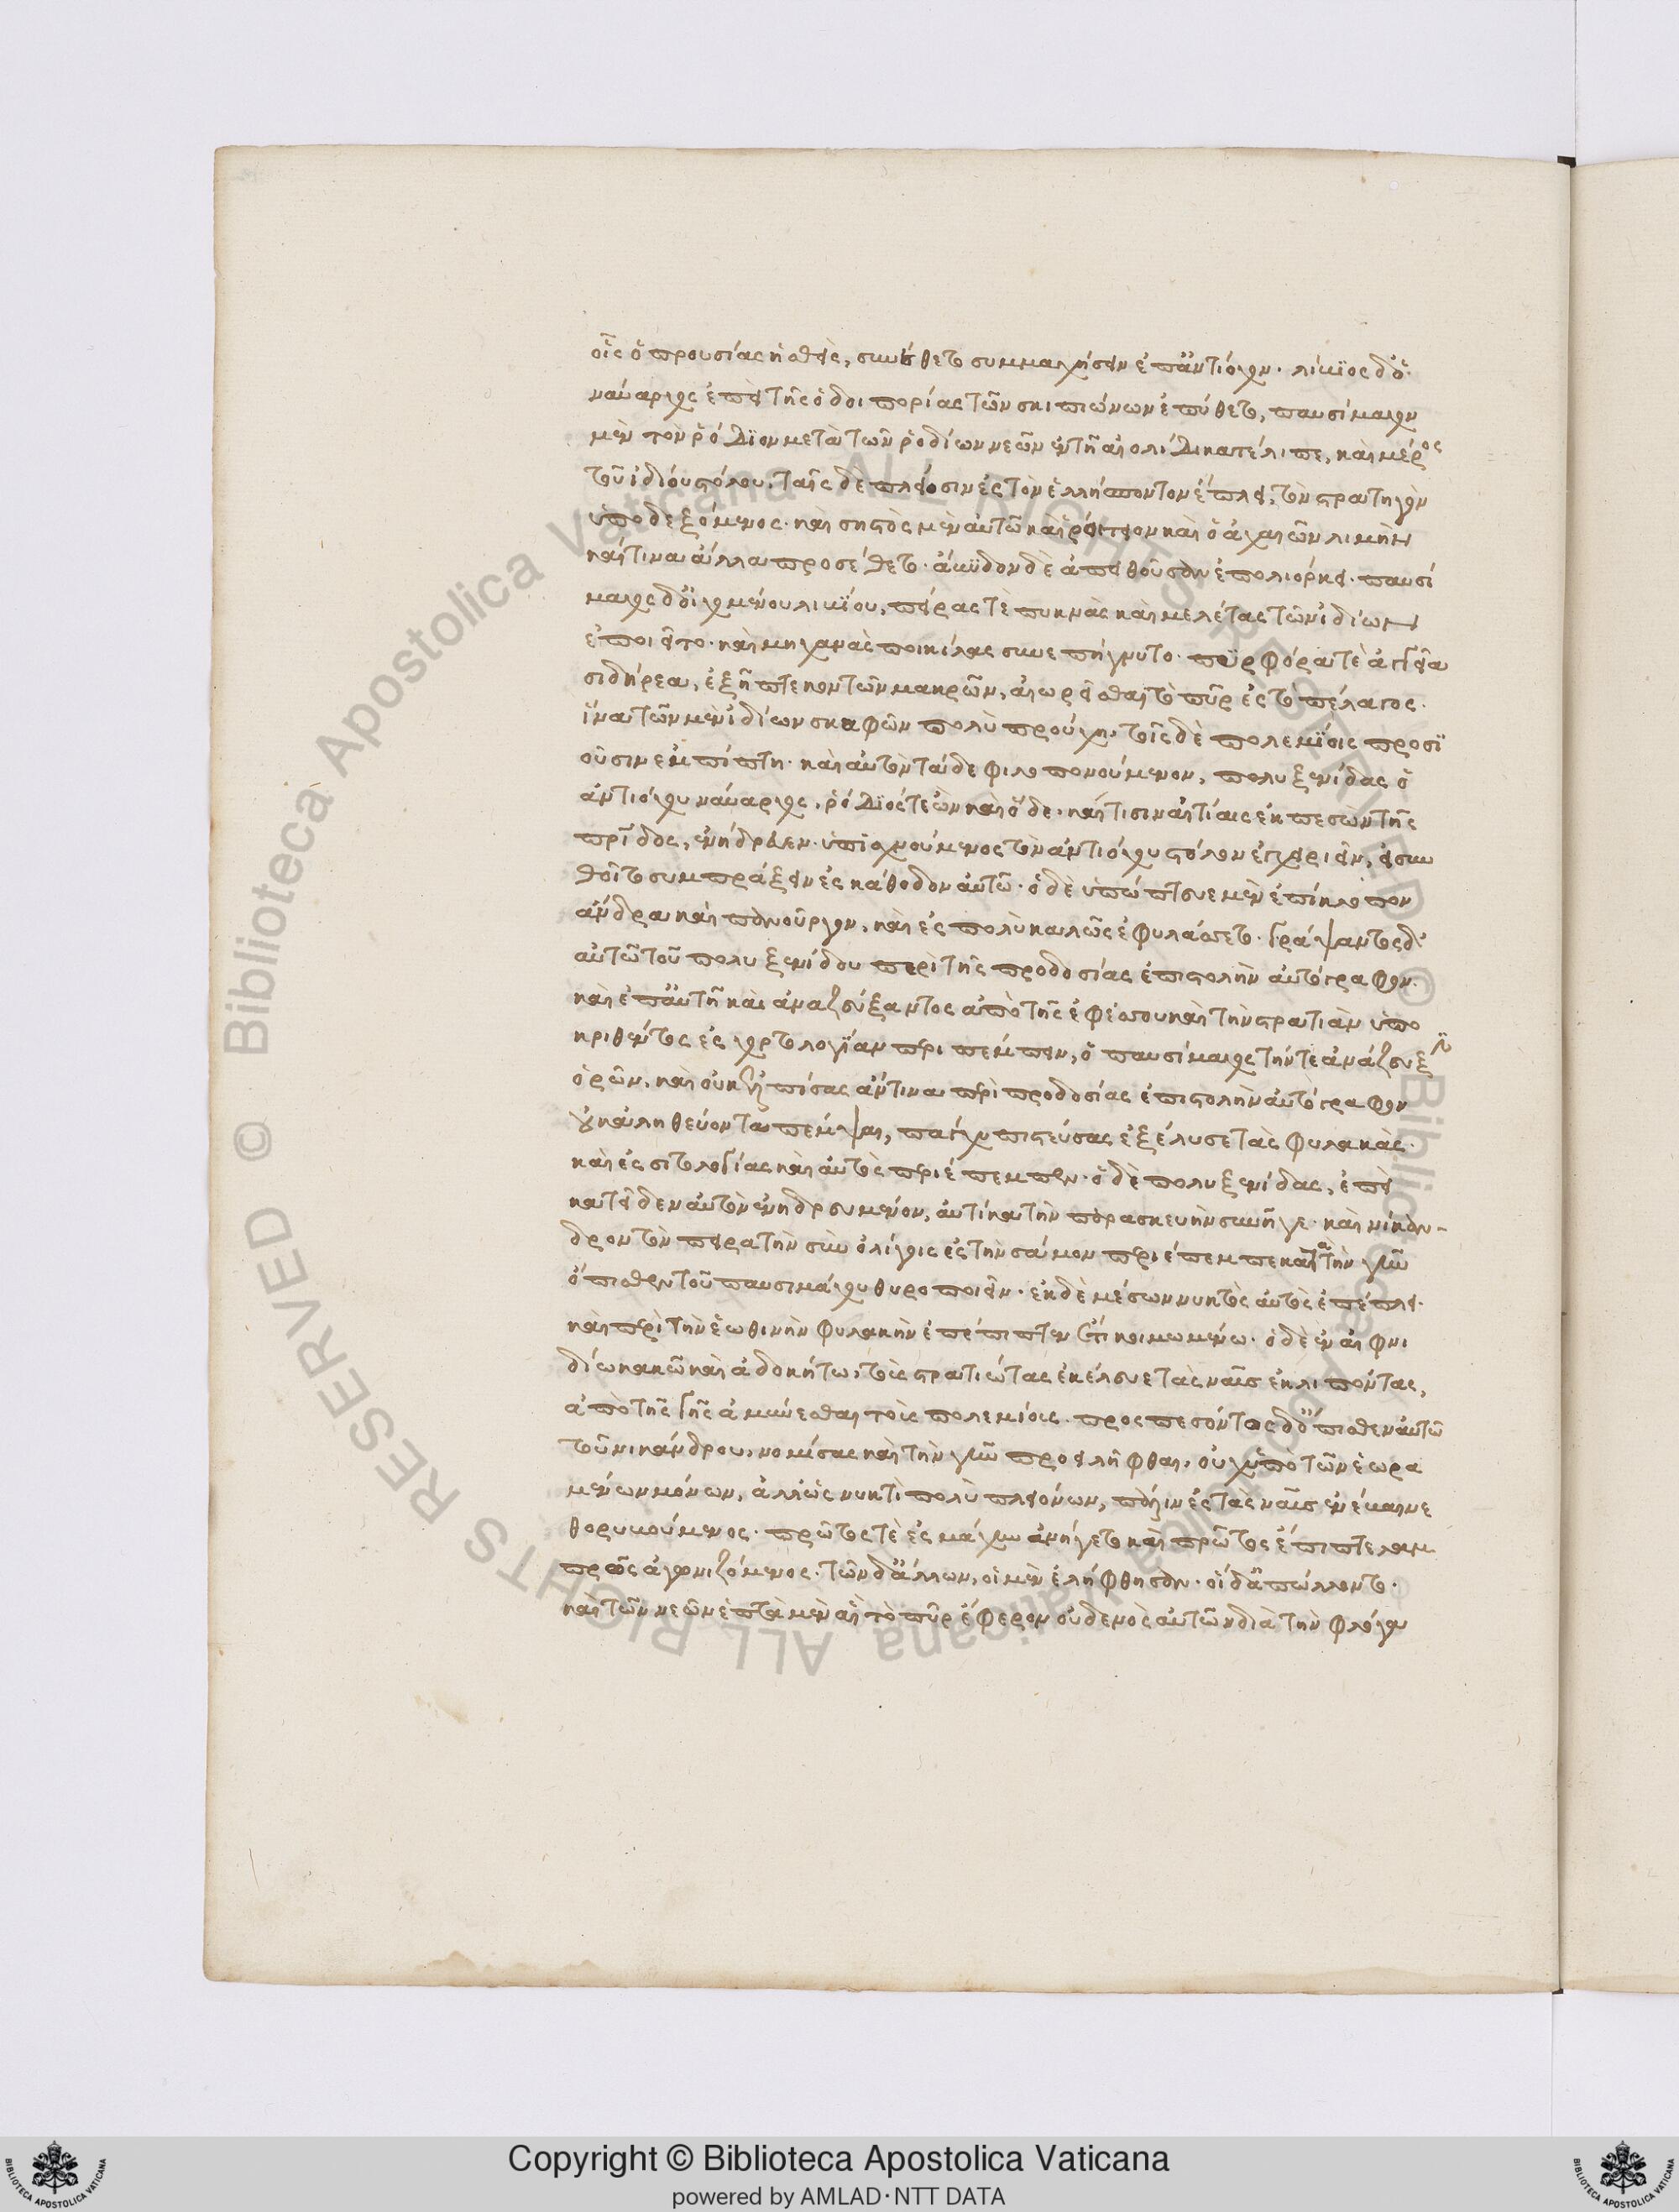 οἷς ὁ προυσίας ἡσθεὶς, συνέθετο συμμαχήσειν ἐπ' ἀντίοχον. λίβιος δ' ὁ
ναύαρχος ἐπεὶ τῆς ὁδοιπορίας τῶν σκιπιώνων ἐπύθετο, παυσίμαχον
μὲν τὸν ῥόδιον μετὰ τῶν ῥοδίων νεῶν ἐν τῇ αἰολίδι κατέλιπε, καὶ μέρος
τοῦ ἰδίου στόλου. ταῖς δὲ πλείοσιν ἐς τὸν ἑλλήσποντον ἔπλει, τὸν στρατηγὸν
ὑποδεξόμενος. καὶ σηστὸς μὲν αὐτῶ καὶ ῥοίτειον καὶ ὁ ἀχαιῶν λιμὴν
καί τινα ἄλλα προσέθετο. ἄβυδον δὲ ἀπειθοῦσαν ἐπολιόρκει. παυσί
μαχος δ' οἰχομένου λιβίου, πείρας τὲ πυκνὰς καὶ μελέτας τῶν ἰδίων
ἐποιεῖτο. καὶ μηχανὰς ποικίλας συνεπήγνυτο. πυρφόρα τὲ ἀγγεῖα
σιδήρεα, ἐξῆπτε κοντῶν μακρῶν, αἰωρεῖσθαι τὸ πῦρ ἐς τὸ πέλαγος.
ἵνα τῶν μὲν ἰδίων σκαφῶν πολὺ προύχη, τοῖς δὲ πολεμίοις προσϊ
οῦσιν ἐμπίπτη. καὶ αὐτὸν τάδε φιλοπονούμενον, πολυξενίδας ὁ
ἀντιόχου ναύαρχος, ῥόδιός τε ὢν καὶ ὅδε. καί τισιν αἰτίαις ἐκπεσὼν τῆς
πατρίδος, ἐνήδρευεν. ὑπισχνούμενος τὸν ἀντιόχου στόλον ἐγχειριεῖν, εἰ συν
θοῖτο συμπράξειν ἐς κάθοδον αὐτῶ. ὁ δὲ ὑπώπτευε μὲν ἐπίκλοπον
ἄνδρα καὶ πανοῦργον, καὶ ἐς πολὺ καλῶς ἐφυλάσσετο. γράψαντος δ'
αὐτῶ τοῦ πολυξενίδου περὶ τῆς προδοσίας ἐπιστολὴν αὐτόγραφον.
καὶ ἐπ' αὐτῆ καὶ ἀναζεύξαντος ἀπὸ τῆς ἐφέσου καὶ τὴν στρατιὰν ὑπο
κριθέντος ἐς χορτολογίαν περιπέμπειν, ὁ παυσίμαχος τήν τε ἀνάζευξιν
ὁρῶν, καὶ οὐκ ἐλπίσας ἄν τινα περὶ προδοσίας ἐπιστολὴν αὐτόγραφον
οὐκ ἀληθεύοντα πέμψαι, πάγχυ πιστεύσας ἐξέλυσε τὰς φυλακὰς.
καὶ ἐς σιτολογίας καὶ αὐτὸς περιέπεμπεν. ὁ δὲ πολυξενίδας, ἐπεὶ
κατεῖδεν αὐτὸν ἐνηδρευμένον, αὐτίκα τὴν παρασκευὴν συνῆγε. καὶ νίκαν-
δρον τὸν πειρατὴν σὺν ὀλίγοις ἐς τὴν σάμον περιέπεμπε κατὰ τὴν γῆν
ὄπισθεν τοῦ παυσιμάχου θυροποιεῖν. ἐκ δὲ μέσων νυκτὸς αὐτὸς ἐπέπλει.
καὶ περὶ τὴν ἑωθινὴν φυλακὴν ἐπέπιπτεν ἔτι κοιμωμένω. ὁ δὲ ἐν αἰφνι
δίω κακῶ καὶ ἀδοκήτω, τοὺς στρατιώτας ἐκέλευε τὰς ναῦς ἐκλιπόντας,
ἀπὸ τῆς γῆς ἀμύνεσθαι τοὺς πολεμίους. προσπεσόντος δ' ὄπισθεν αὐτῶ
τοῦ νικάνδρου, νομίσας καὶ τὴν γῆν προειλῆφθαι, οὐχ ὑπὸ τῶν ἑωρα
μένων μόνων, ἀλλ' ὡς νυκτὶ πολὺ πλειόνων, πάλιν ἐς τὰς ναῦς ἐνέβαινε
θορυβούμενος. πρῶτος τὲ ἐς μάχην ἀνήγετο καὶ πρῶτος ἔπιπτε λαμ
πρῶς ἀγωνιζόμενος. τῶν δ' ἄλλων, οἱ μὲν ἐλήφθησαν. οἱ δ' ἀπώλλοντο.
καὶ τῶν νεῶν ἑπτὰ μὲν αἳ τὸ πῦρ ἔφερον οὐδενὸς αὐτῶν διὰ τὴν φλόγα